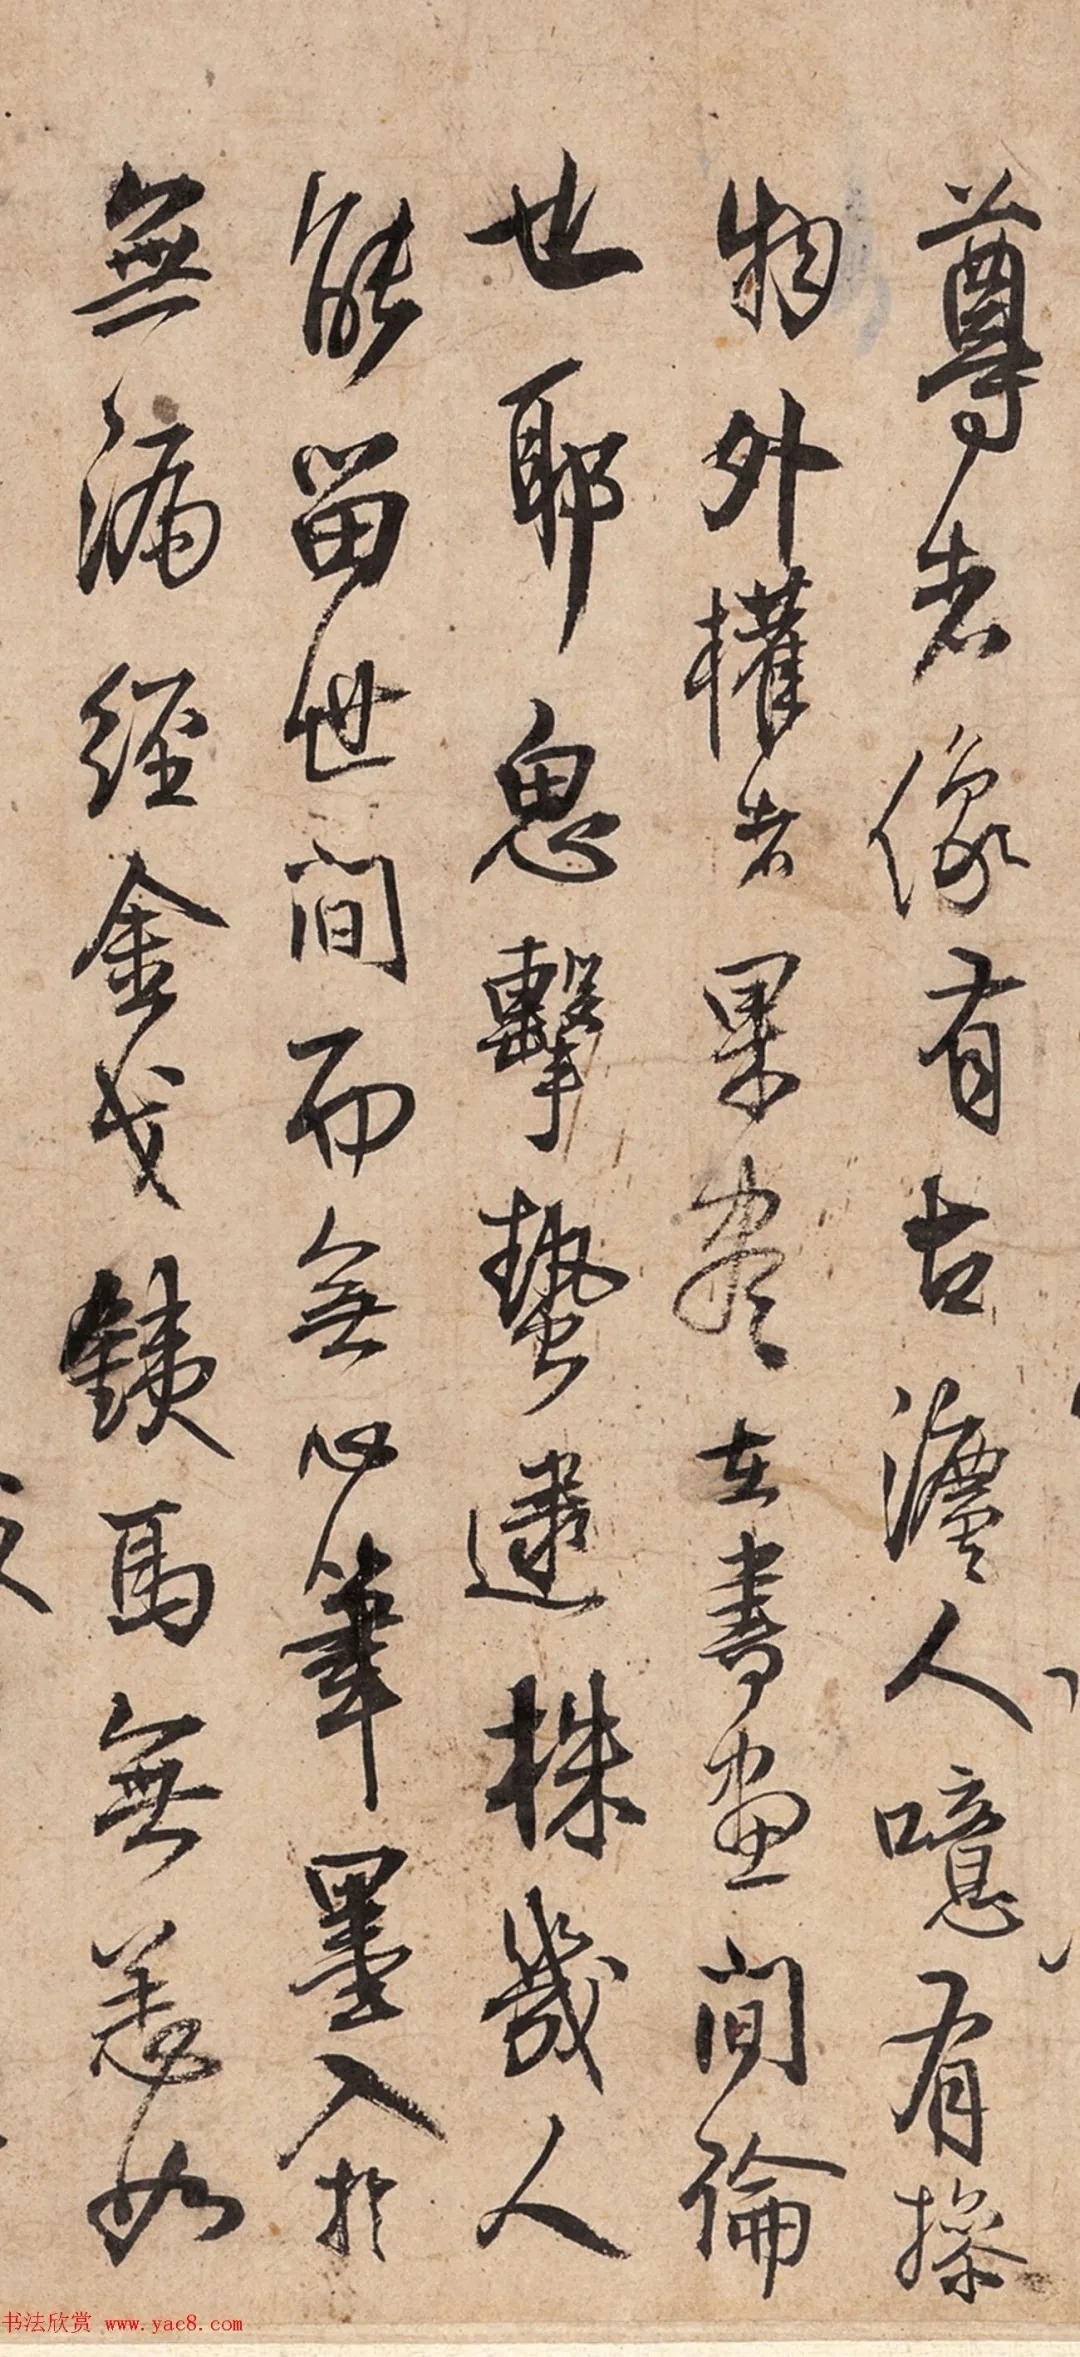 尊者像有古灋人噫有操
物外權者果盡在書畫間倫
也耶鬼擊蟄遽株幾人
能留世間而無心筆墨入於
無漏經金戈鐵馬無恙如
书法欣赏 www.yac8.com